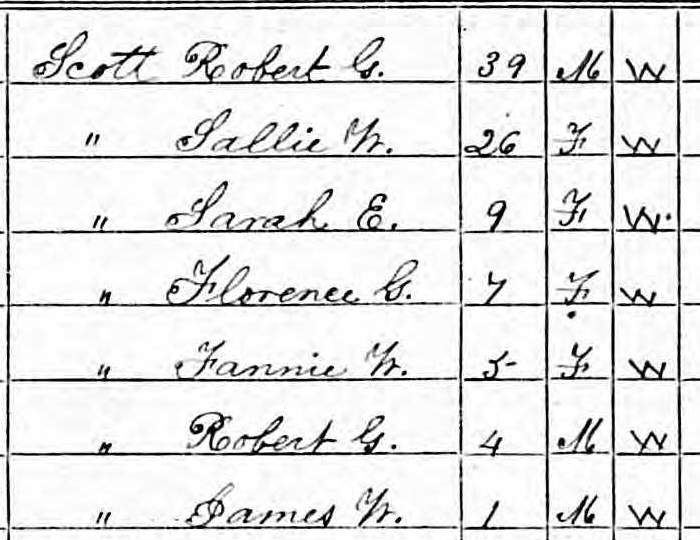 Scott Robert G. 39 M W
" Sallie W. 26 F W
" Sarah E. 9 F W
" Florence G. 7 F W
" Fannie W. 5 F W
" Robert G. 4 M W
" James W. 1 M W